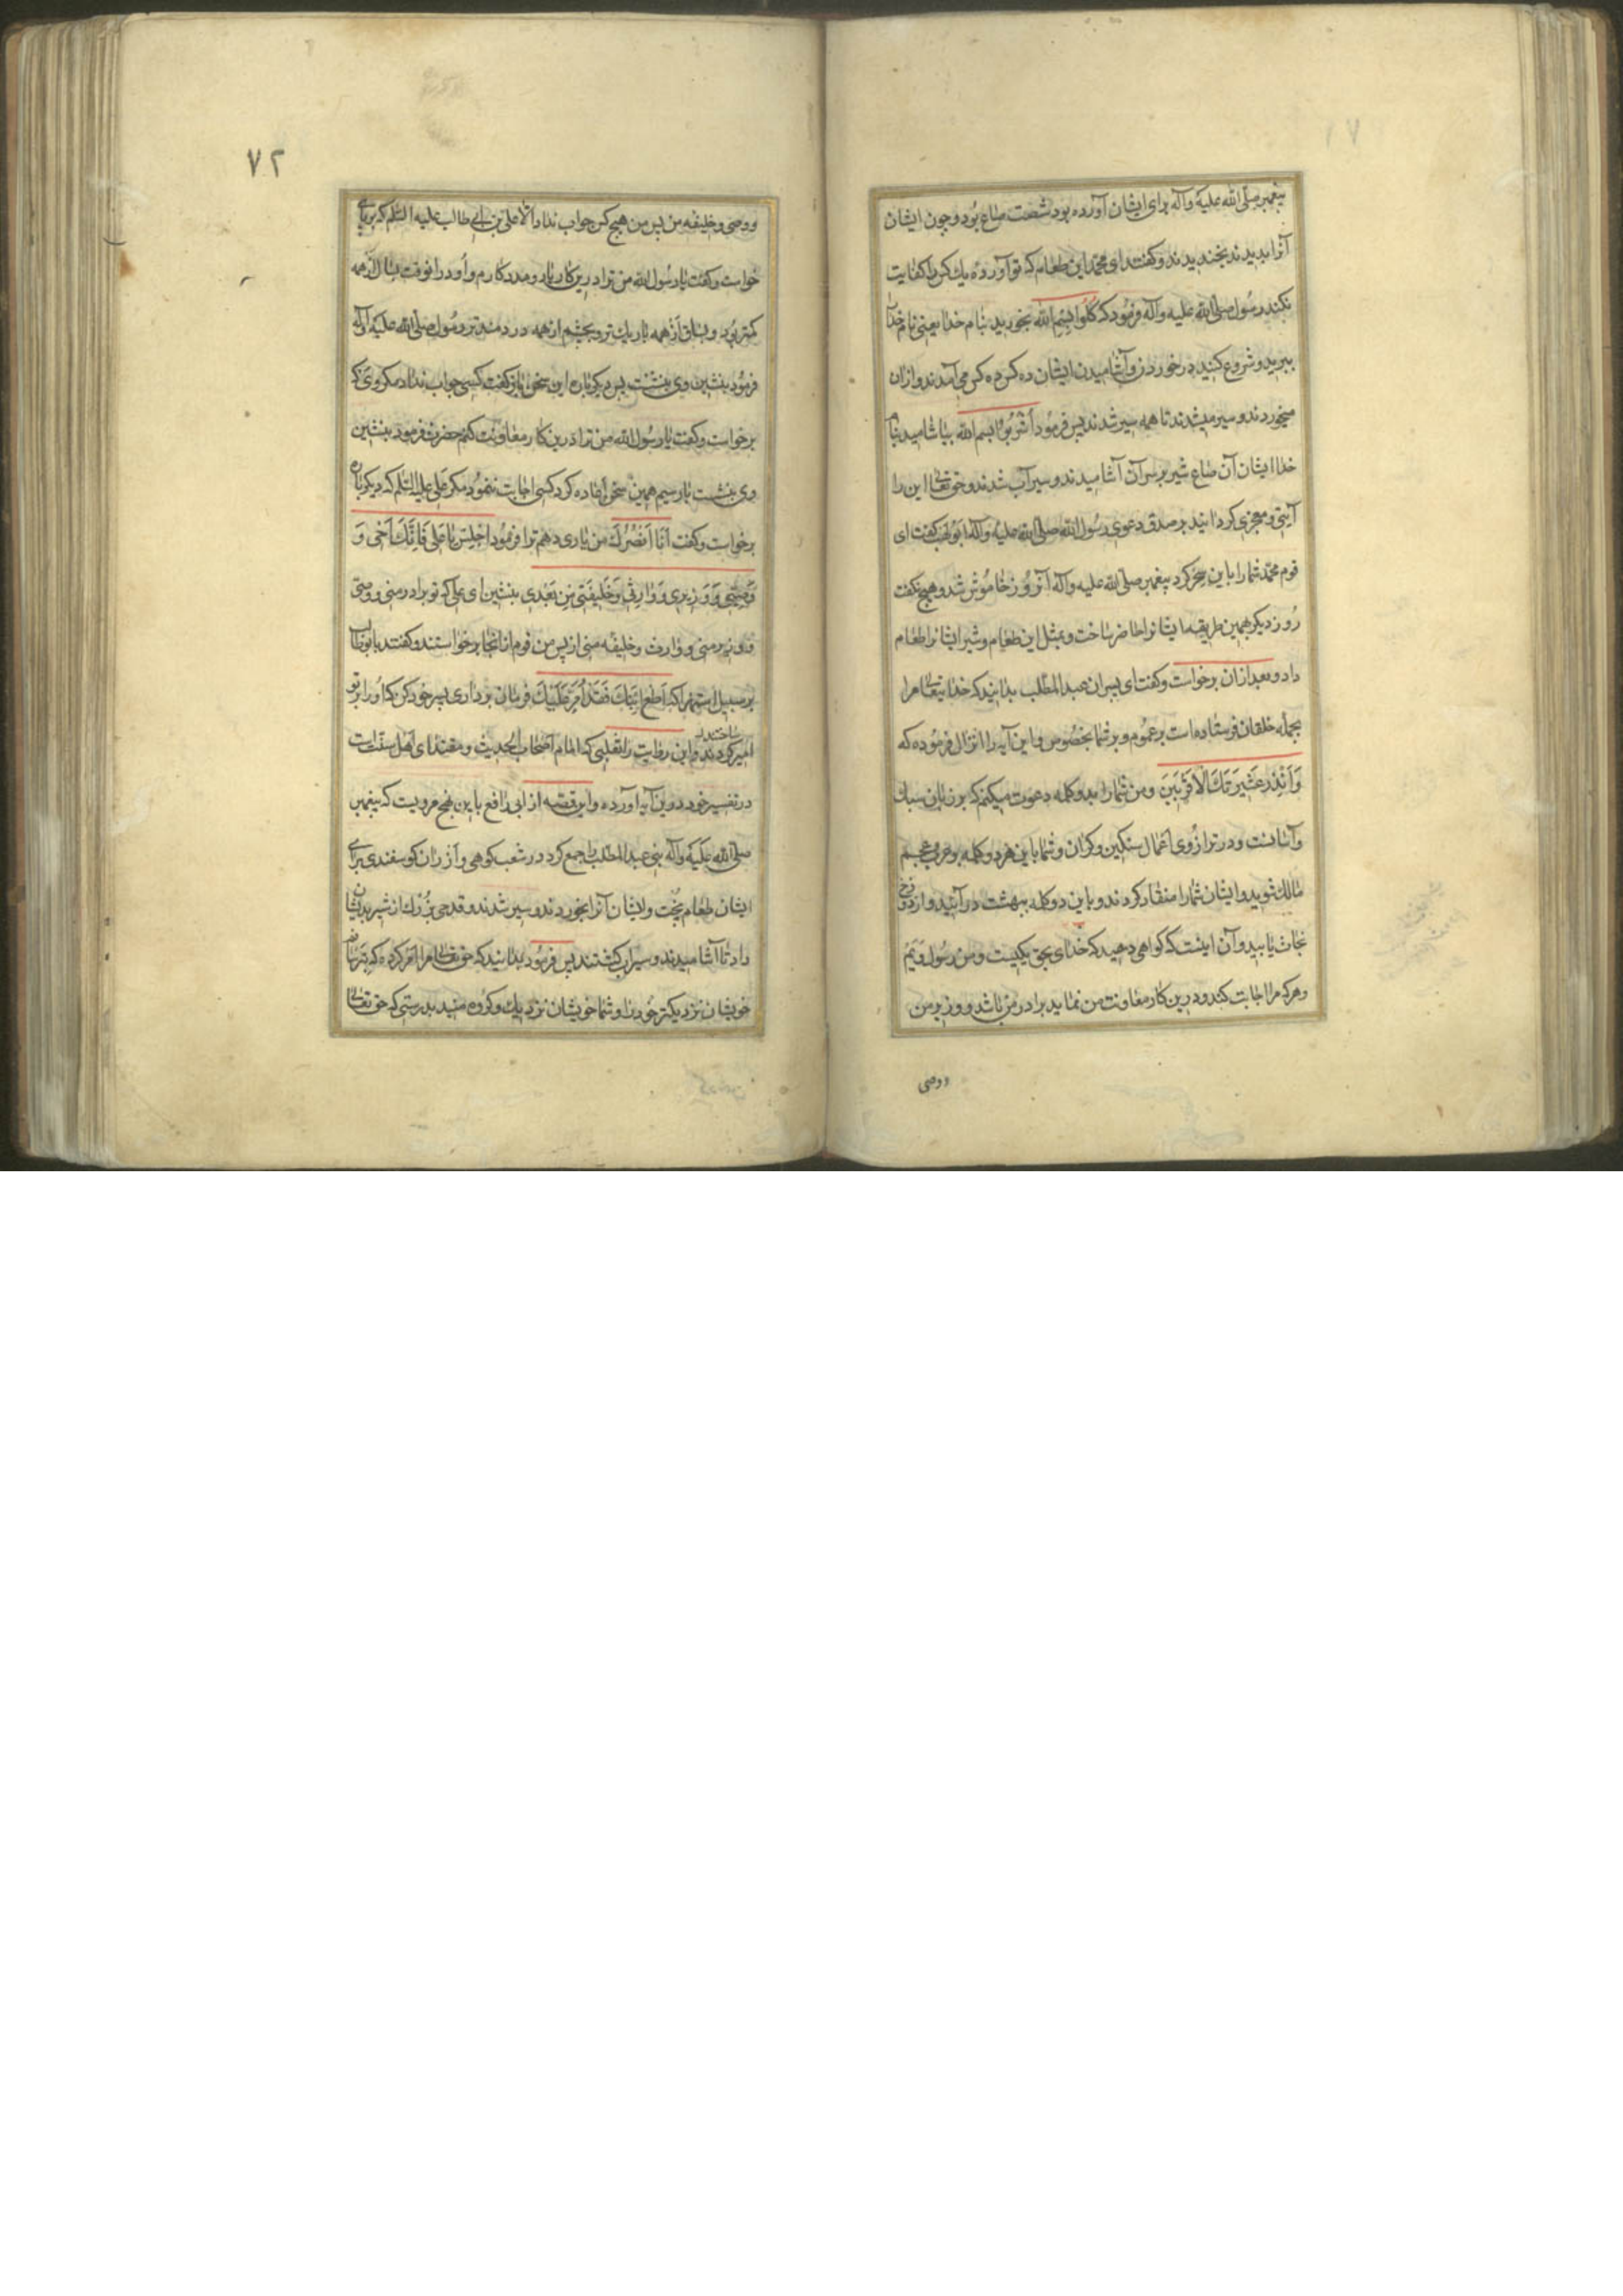 پیغمبر صلی الله علیه وآله برای ایشان آورده بود شصت صاع بود و چون ایشان
آنرا بدیدند بخندیدند و کفتند ای محمد این طعام که تو آورده یك کس را کفایت
نکند رسول صلی الله علیه وآله فرمود که کُلُوا بِسْمِ الله بخورید بنام خدا یعنی نام خدا
ببرید و شروع کنید در خوردن و آشامیدن ایشان ده کس ده کس می آمدند و ازان
میخوردند و سیر میشدند تا همه سیر شدند پس فرمود اشربوا بسم الله بیاشامید بنام
خدا ایشان آن صاع شیر بر سر آن آشامیدند و سیرآب شدند و حق تعالی این را
آیتی و معجزی کردانید بر صدق دعوی رسول الله صلی الله علیه وآله ابولهب کفت ای
قوم محمد شما را باین سحر کرد پیغمبر صلی الله علیه وآله آنروز خاموش شد و هیچ نکفت
روز دیکر بهمین طریقه ایشانرا حاضر ساخت و بمثل این طعام و شیر ایشانرا طعام
داد و بعد ازان برخواست و کفت ای پسران عبدالمطلب بدانید که خدایتعالی مرا
بجمله خلقان فرستاده است بر عموم و بر شما بخصوص و این آیه را انزال فرموده که
وَاَنْذِرْ عَشِیرَتَكَ الْاَقْرَبِینَ و من شما را بدو کلمه دعوت میکنم که بر زبان سبك
و آسانست و در ترازوی اعمال سنکین و کران و شما باین هر دو کلمه بر عرب و عجم
مالك شوید و ایشان شما را منقاد کردند و باین دو کلمه ببهشت درآیید و از دوزخ
نجات یابید و آن اینست که کواهی دهید که خدای بحق یکیست و من رسول ویم
و هر که مرا اجابت کند و درین کار معاونت من نماید برادر من باشد و وزیر من
و وصی
٧٢
و وصی و خلیفه من پس من هیچ کس جواب نداد الا علی بن ابی طالب علیه السلم که بر پای
خواست و کفت یا رسول الله من ترا درین کار یار و مددکارم و او دران وقت بسال از همه
کمتر بود و بساق از همه باریك تر و بچشم از همه دردمندتر رسول صلی الله علیه وآله
فرمود بنشین وی بنشست پس دیکر باره این سخن باز کفت کسی جواب نداد مکر وی که
برخواست و کفت یا رسول الله من ترا درین کار معاونت کنم حضرت فرمود بنشین
وی بنشست بار سیم همین سخن اعاده کرد کسی اجابت ننمود مکر علی علیه السلم که دیکر باره
برخواست و کفت اَنَا اَنْصُرُكَ من یاری دهم ترا فرمود اجلس یا علی فَاِنَّكَ اَخی وَ
وَصِیّی وَ وَزیری وَ وارِثی وَ خَلیفَتی مِن بَعْدی بنشین ای علی که تو برادر منی و وصی
و وزیر منی و وارث و خلیفه منی از پس من قوم از انجا برخواستند و کفتند با ابوطالب
بر سبیل استهزا که اَطِعْ اِبْنَكَ فَقَدْ اُمِّرَ عَلَیْكَ فرمان برداری پسر خود کن که او را بر تو
امیر کردند و این روایت را ثعلبی که امام اصحاب الحدیث و مقتدای اهل سنت است
در تفسیر خود درین آیه آورده و این قصه از ابی رافع باین نهج مرویست که پیغمبر
صلی الله علیه وآله بنی عبدالمطلب را جمع کرد در شعب کوهی و از ران کوسفندی برای
ایشان طعام پخت و ایشان آنرا بخوردند و سیر شدند و قدحی بزرك از شیر بدیشان
داد تا آشامیدند و سیراب کشتند پس فرمود بدانید که حق تعالی مرا امر کرده که بترسان
خویشان نزدیکتر خود را و شما خویشان نزدیك و کروه منید بدرستی که حق تعالی